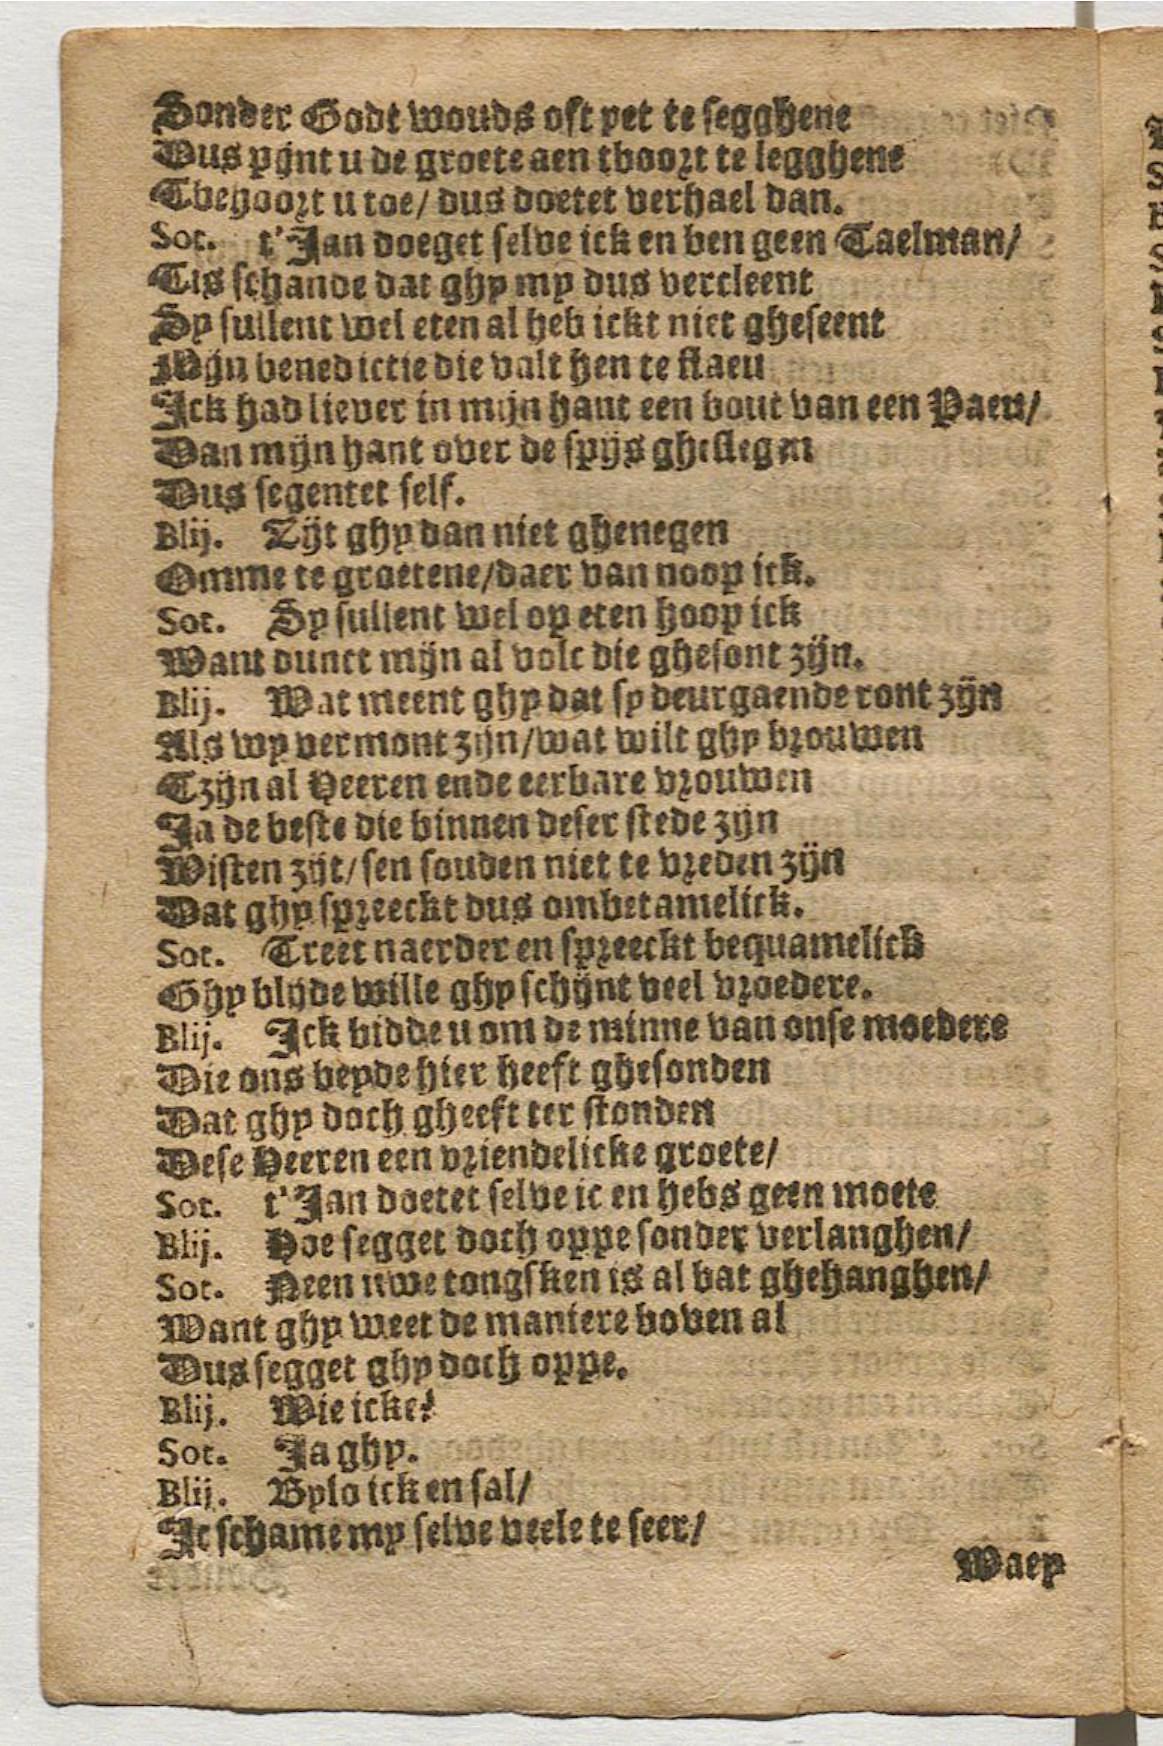 Sonder Godt wouds oft yet te segghene
Dus pijnt u de groete aen tboort te legghene
Tbehoort u toe/ dus doetet verhael dan.
Sot. t'Jan doeget selve ick en ben geen Taelman/
Tis schande dat ghy my dus vercleent
Sy sullent wel eten al heb ickt niet gheseent
Mijn benedictie die valt hen te flaeu
Ick had liever in mijn hant een bout van een Paeu/
Dan mijn hant over de spijs gheslegen
Dus segentet self.
Blij. Zijt ghy dan niet ghenegen
Omme te groetene/daer van noop ick.
Sot. Sy sullent wel op eten hoop ick
Want dunct mijn al volc die ghesont zijn.
Blij. Wat meent ghy dat sy deurgaende ront zijn
Als wy vermont zijn/wat wilt ghy brouwen
Tzijn al Heeren ende eerbare vrouwen
Ja de beste die binnen deser stede zijn
Wisten zijt/sen souden niet te vreden zijn
Dat ghy spreeckt dus ombetamelick.
Sot. Treet naerder en spreeckt bequamelick
Ghy blijde wille ghy schijnt veel vroedere.
Blij. Ick bidde u om de minne van onse moedere
Die ons beyde hier heeft ghesonden
Dat ghy doch gheeft ter stonden
Dese Heeren een vriendelicke groete/
Sot. t'Jan doetet selve ic en hebs geen moete
Blij. Hoe segget doch oppe sonder verlanghen/
Sot. Neen uwe tongsken is al bat ghehanghen/
Want ghy weet de maniere boven al
Dus segget ghy doch oppe.
Blij. Wie icke?
Sot. Ja ghy.
Blij. Bylo ick en sal/
Ic schame my selve veele te seer/
Waey